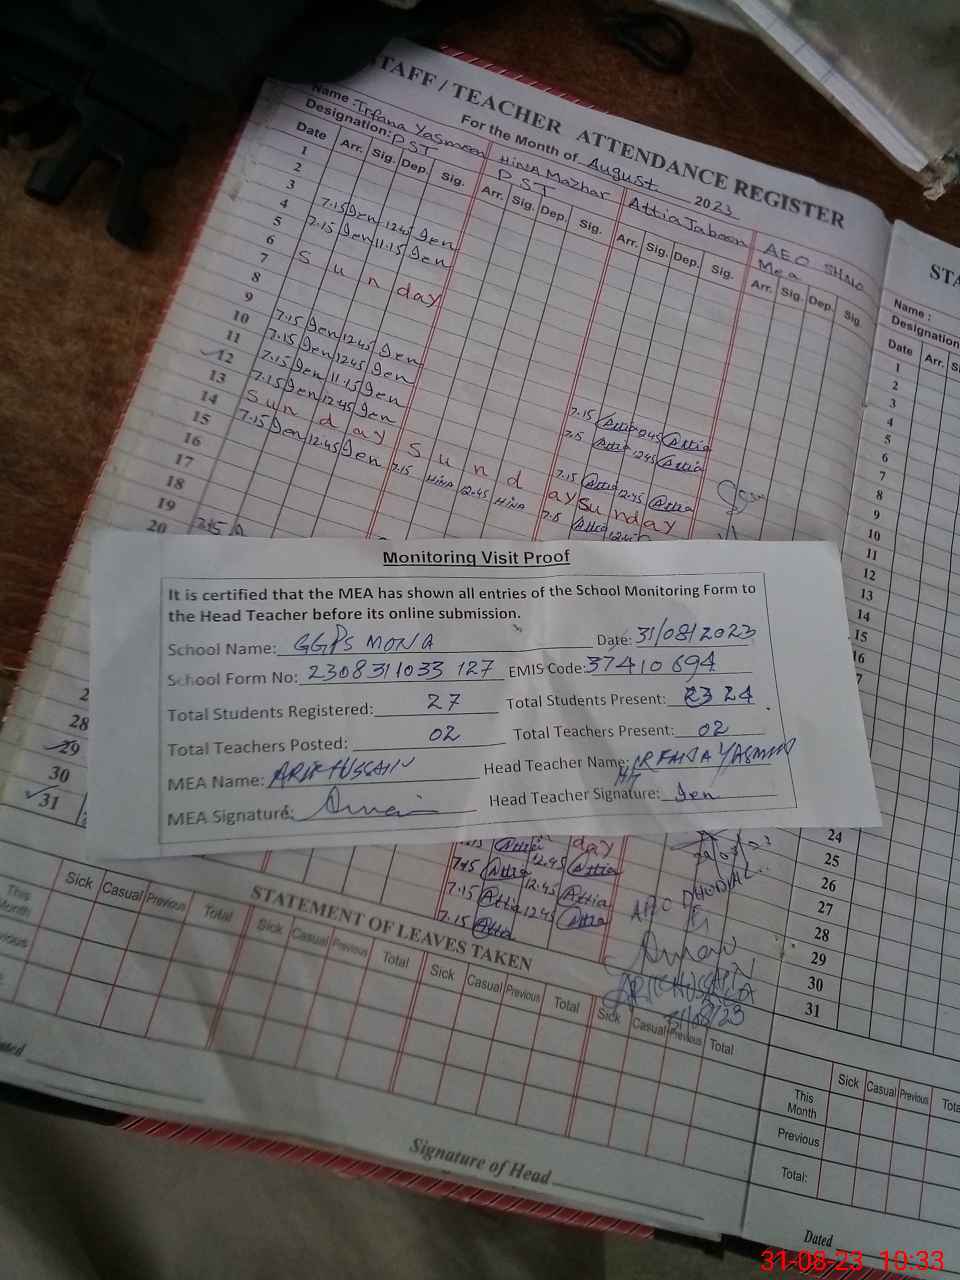 STAFF / TEACHER ATTENDANCE REGISTER
For the Month of August 2023
Name: Irfana Yasmeen Hina Mazhar Attia Jabeen AEO
Designation: PST PST Mea
Date Arr. Sig. Dep. Sig. Arr. Sig. Dep. Sig. Arr. Sig. Dep. Sig. Arr. Sig. Dep. Sig.
1
2
3
4 7.15 12.45
5 7.15 11.15
6 Sunday
7
8
9
10 7.15 12.45
11 7.15 12.45
12 7.15 11.15
13 7.15 12.45
14 Sunday
15 7.15 12.45
16
17
18
19
20 7.15
7.15 Attia 12.45 Attia
7.15 Attia 12.45 Attia
7.15 Attia 12.45 Attia
Sunday Sunday
7.15 HINA 12.45 HINA 7.15 Attia 12.45
Monitoring Visit Proof
It is certified that the MEA has shown all entries of the School Monitoring Form to
the Head Teacher before its online submission.
School Name: GGPS MONA Date: 31/08/2023
School Form No: 2308311033 127 EMIS Code: 37410694
Total Students Registered: 27 Total Students Present: 23 24
Total Teachers Posted: 02 Total Teachers Present: 02
MEA Name: ARIF HUSSAIN Head Teacher Name: IRFANA YASMIN
MEA Signature: Head Teacher Signature:
28
29
30
31
day
7.15 Attia 12.45 Attia
7.15 Attia 12.45 Attia
7.15 Attia
AEO
ARIF HUSSAIN
MEA
31/08/23
STATEMENT OF LEAVES TAKEN
This Month Sick Casual Previous Total Sick Casual Previous Total Sick Casual Previous Total Sick Casual Previous Total
Previous
Signature of Head
Dated
STA
Name :
Designation
Date Arr.
1
2
3
4
5
6
7
8
9
10
11
12
13
14
15
16
24
25
26
27
28
29
30
31
Sick Casual Previous Tota
This Month
Previous
Total:
Dated
31-08-23 10:33